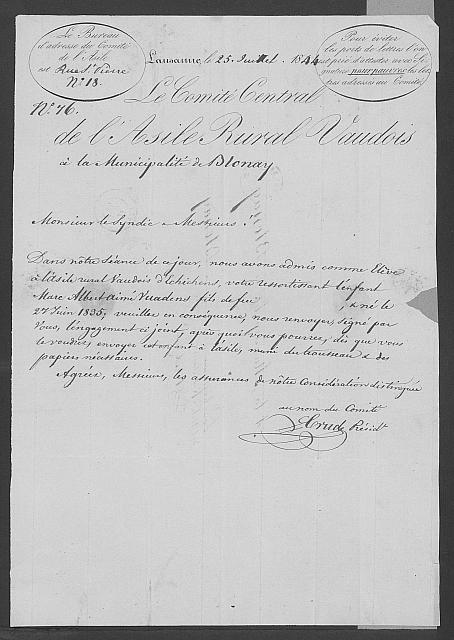 Le Bureau
d'adresse du Comité
de l'Asile
est Rue St. Pierre
No. 18.
Lausanne, le 25 Juillet, 1844
Pour éviter
les ports de lettres l'on
est prié d'attester avec
pour pauvres les
adressées au Comité
No. 76.
Le Comité Central
de l'Asile Rural Vaudois
à la Municipalité de Blonay
Monsieur le Syndic & Messieurs !
Dans nôtre Séance de ce jour, nous avons admis comme Elève
à l'Asile rural Vaudois d'Echichens, votre ressortissant l'enfant
Marc Albert Aimé Vuadens fils de feu , & né le
27 Juin 1835, veuillez en conséquence, nous renvoyer, signé par
Vous, l'engagement ci joint, après quoi vous pourrez, dès que vous
le voudrez, envoyer cet enfant à l'asile, muni du trousseau & des
papiers nécessaires.
Agréez, Messieurs, les assurances de nôtre Considération distinguée
au nom du Comité
Crud, Présidt